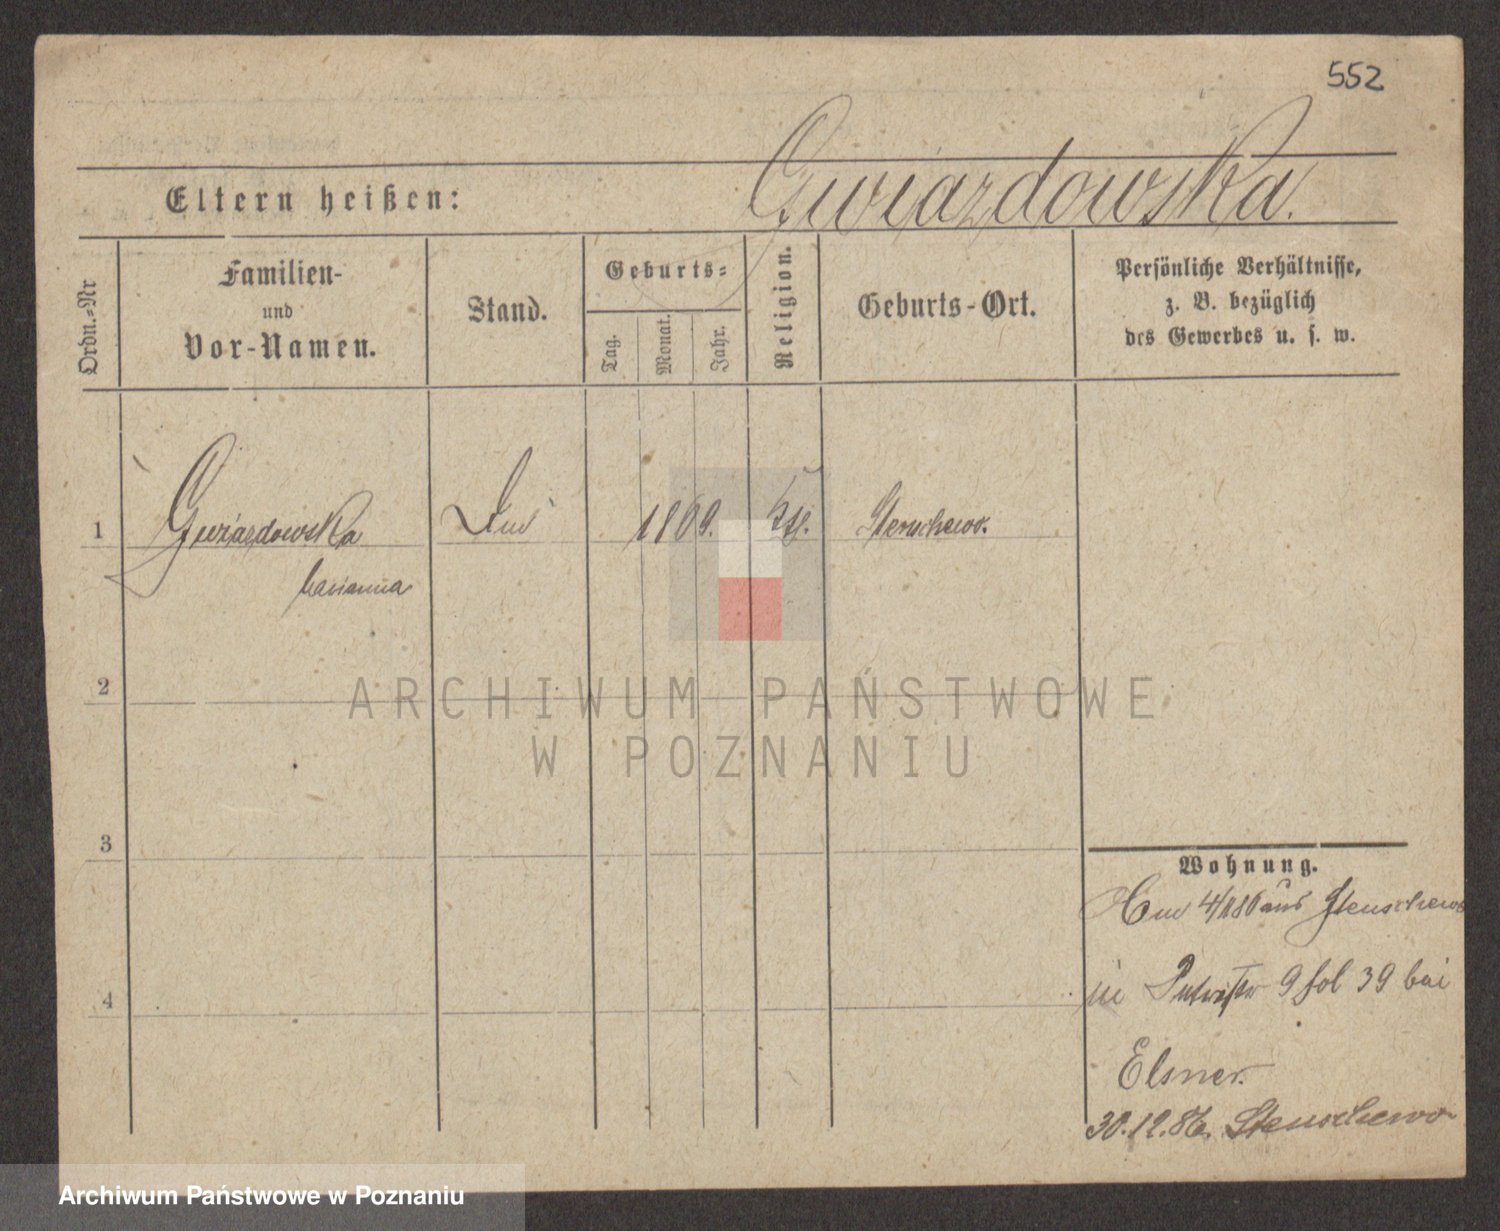 552
Eltern heißen: Gwiazdowska.
Ordn.-Nr
Familien-
und
Vor-Namen.
Stand.
Geburts-
Tag.
Monat.
Jahr.
Religion.
Geburts-Ort.
Persönliche Verhältnisse,
z. B. bezüglich
des Gewerbes u. s. w.
1 Gwiazdowska 1869. Stenschewo.
Marianna
2
3
4
Wohnung.
aus Stenschewo
in 9 fol 39 bei
Elsner.
30.12.86. Stenschewo
ARCHIWUM PAŃSTWOWE
W POZNANIU
Archiwum Państwowe w Poznaniu